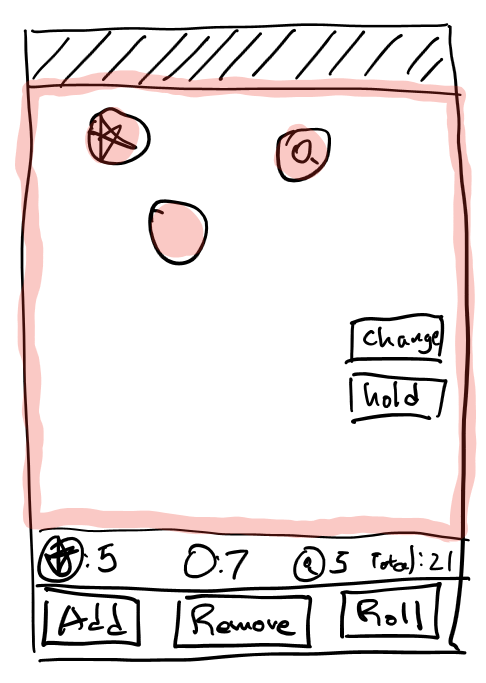 Change
hold
: 5 O:7 5 Total: 21
Add Remove Roll